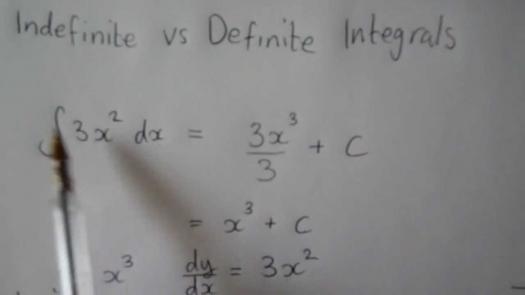 Indefinite vs Definite Integrals
∫ 3x² dx = 3x³/3 + C
= x³ + C
x³ dy/dx = 3x²